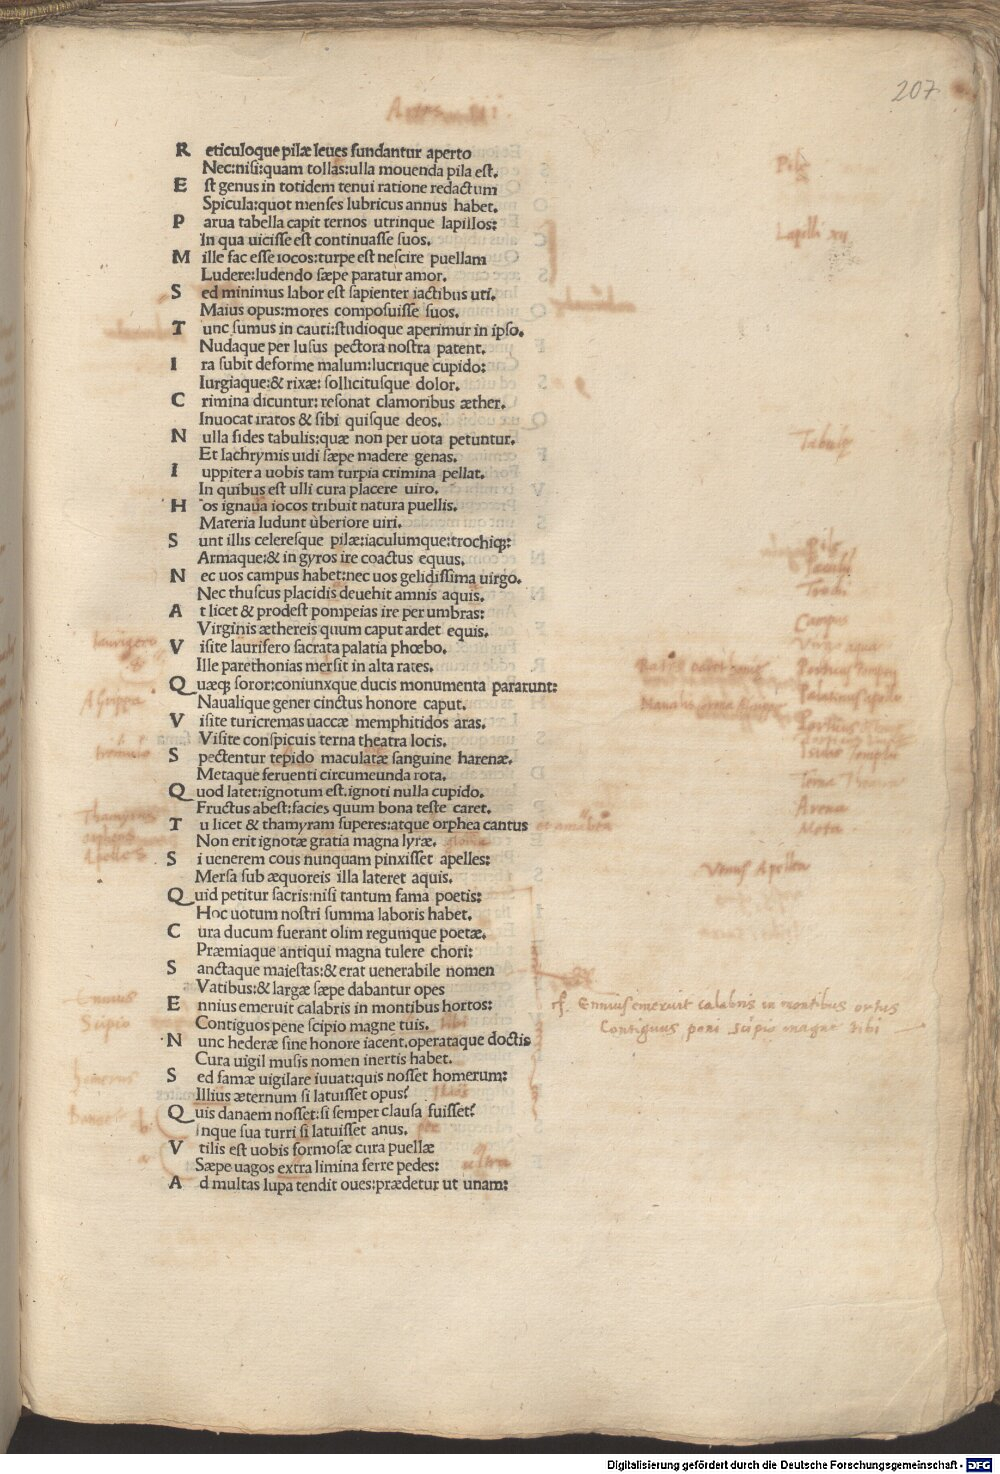 207
R eticuloque pilæ leues fundantur aperto
Nec:nisi:quam tollas:ulla mouenda pila est.
E st genus in totidem tenui ratione redactum
Spicula:quot menses lubricus annus habet.
P arua tabella capit ternos utrinque lapillos:
In qua uicisse est continuasse suos.
M ille fac esse iocos:turpe est nescire puellam
Ludere:ludendo sæpe paratur amor.
S ed minimus labor est sapienter iactibus uti.
Maius opus:mores composuisse suos.
T unc sumus in cauti:studioque aperimur in ipso.
Nudaque per lusus pectora nostra patent.
I ra subit deforme malum:lucrique cupido:
Iurgiaque:& rixæ: sollicitusque dolor.
C rimina dicuntur: resonat clamoribus æther.
Inuocat iratos & sibi quisque deos.
N ulla fides tabulis:quæ non per uota petuntur.
Et lachrymis uidi sæpe madere genas.
I uppiter a uobis tam turpia crimina pellat.
In quibus est ulli cura placere uiro.
H os ignaua iocos tribuit natura puellis.
Materia ludunt ùberiore uiri.
S unt illis celeresque pilæ:iaculumque:trochiqꝫ:
Armaque:& in gyros ire coactus equus.
N ec uos campus habet:nec uos gelidissima uirgo.
Nec thuscus placidis deuehit amnis aquis.
A t licet & prodest pompeias ire per umbras:
Virginis æthereis quum caput ardet equis.
V isite laurifero sacrata palatia phœbo.
Ille parethonias mersit in alta rates.
Q uæqꝫ soror:coniunxque ducis monumenta pararunt:
Naualique gener cinctus honore caput.
V isite turicremas uaccæ memphitidos aras.
Visite conspicuis terna theatra locis.
S pectentur tepido maculatæ sanguine harenæ.
Metaque feruenti circumeunda rota.
Q uod latet:ignotum est.ignoti nulla cupido.
Fructus abest:facies quum bona teste caret.
T u licet & thamyram superes:atque orphea cantus
Non erit ignotæ gratia magna lyræ.
S i uenerem cous nunquam pinxisset apelles:
Mersa sub æquoreis illa lateret aquis.
Q uid petitur sacris:nisi tantum fama poetis:
Hoc uotum nostri summa laboris habet.
C ura ducum fuerant olim regumque poetæ.
Præmiaque antiqui magna tulere chori:
S anctaque maiestas:& erat uenerabile nomen
Vatibus:& largæ sæpe dabantur opes
E nnius emeruit calabris in montibus hortos:
Contiguos pene scipio magne tuis.
N unc hederæ sine honore iacent.operataque doctis
Cura uigil musis nomen inertis habet.
S ed famæ uigilare iuuat:quis nosset homerum:
Illius æternum si latuisset opus?
Q uis danaem nosset:si semper clausa fuisset?
Inque sua turri si latuisset anus.
V tilis est uobis formosæ cura puellæ
Sæpe uagos extra limina ferre pedes:
A d multas lupa tendit oues:prædetur ut unam:
Lapilli xij
Tabulę
Trochi
Campus
Arena
Meta
Venus Apellea
Ennius emeruit calabris in montibus ortus
Contiguus poni scipio magne tibi
Agrippa
Ennius
Scipio
homerus
ultra
Digitalisierung gefördert durch die Deutsche Forschungsgemeinschaft - DFG